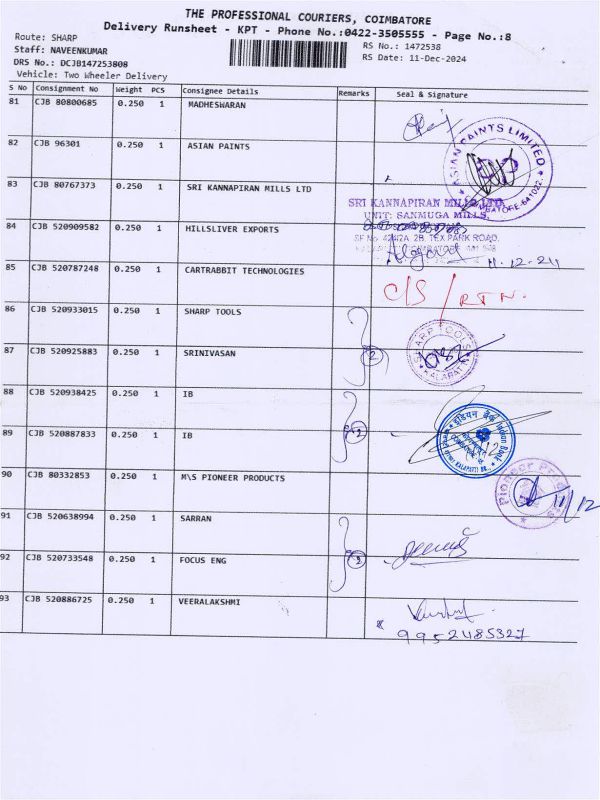 THE PROFESSIONAL COURIERS, COIMBATORE
Delivery Runsheet - KPT - Phone No.:0422-3505555 - Page No.:8
Route: SHARP
RS No.: 1472538
Staff: NAVEENKUMAR
RS Date: 11-Dec-2024
DRS No.: DCJB147253808
Vehicle: Two Wheeler Delivery
S No Consignment No Weight PCS Consignee Details Remarks Seal & Signature
81 CJB 80800685 0.250 1 MADHESWARAN
82 CJB 96301 0.250 1 ASIAN PAINTS
ASIAN PAINTS LIMITED
COIMBATORE-641022
83 CJB 80767373 0.250 1 SRI KANNAPIRAN MILLS LTD
SRI KANNAPIRAN MILLS LTD.
UNIT: SANMUGA MILLS,
84 CJB 520909582 0.250 1 HILLSLIVER EXPORTS
SF No. 424/2A 2B, TEX PARK ROAD,
11.12.24
85 CJB 520787248 0.250 1 CARTRABBIT TECHNOLOGIES
C/S / RTN.
86 CJB 520933015 0.250 1 SHARP TOOLS
SHARP TOOLS
KALAPATTI
87 CJB 520925883 0.250 1 SRINIVASAN 2
88 CJB 520938425 0.250 1 IB
इंडियन बैंक Indian Bank
89 CJB 520887833 0.250 1 IB 2
KALAPATTI BR.
90 CJB 80332853 0.250 1 M\S PIONEER PRODUCTS
Pioneer
11/12
91 CJB 520638994 0.250 1 SARRAN
92 CJB 520733548 0.250 1 FOCUS ENG 2
93 CJB 520886725 0.250 1 VEERALAKSHMI
9952485327